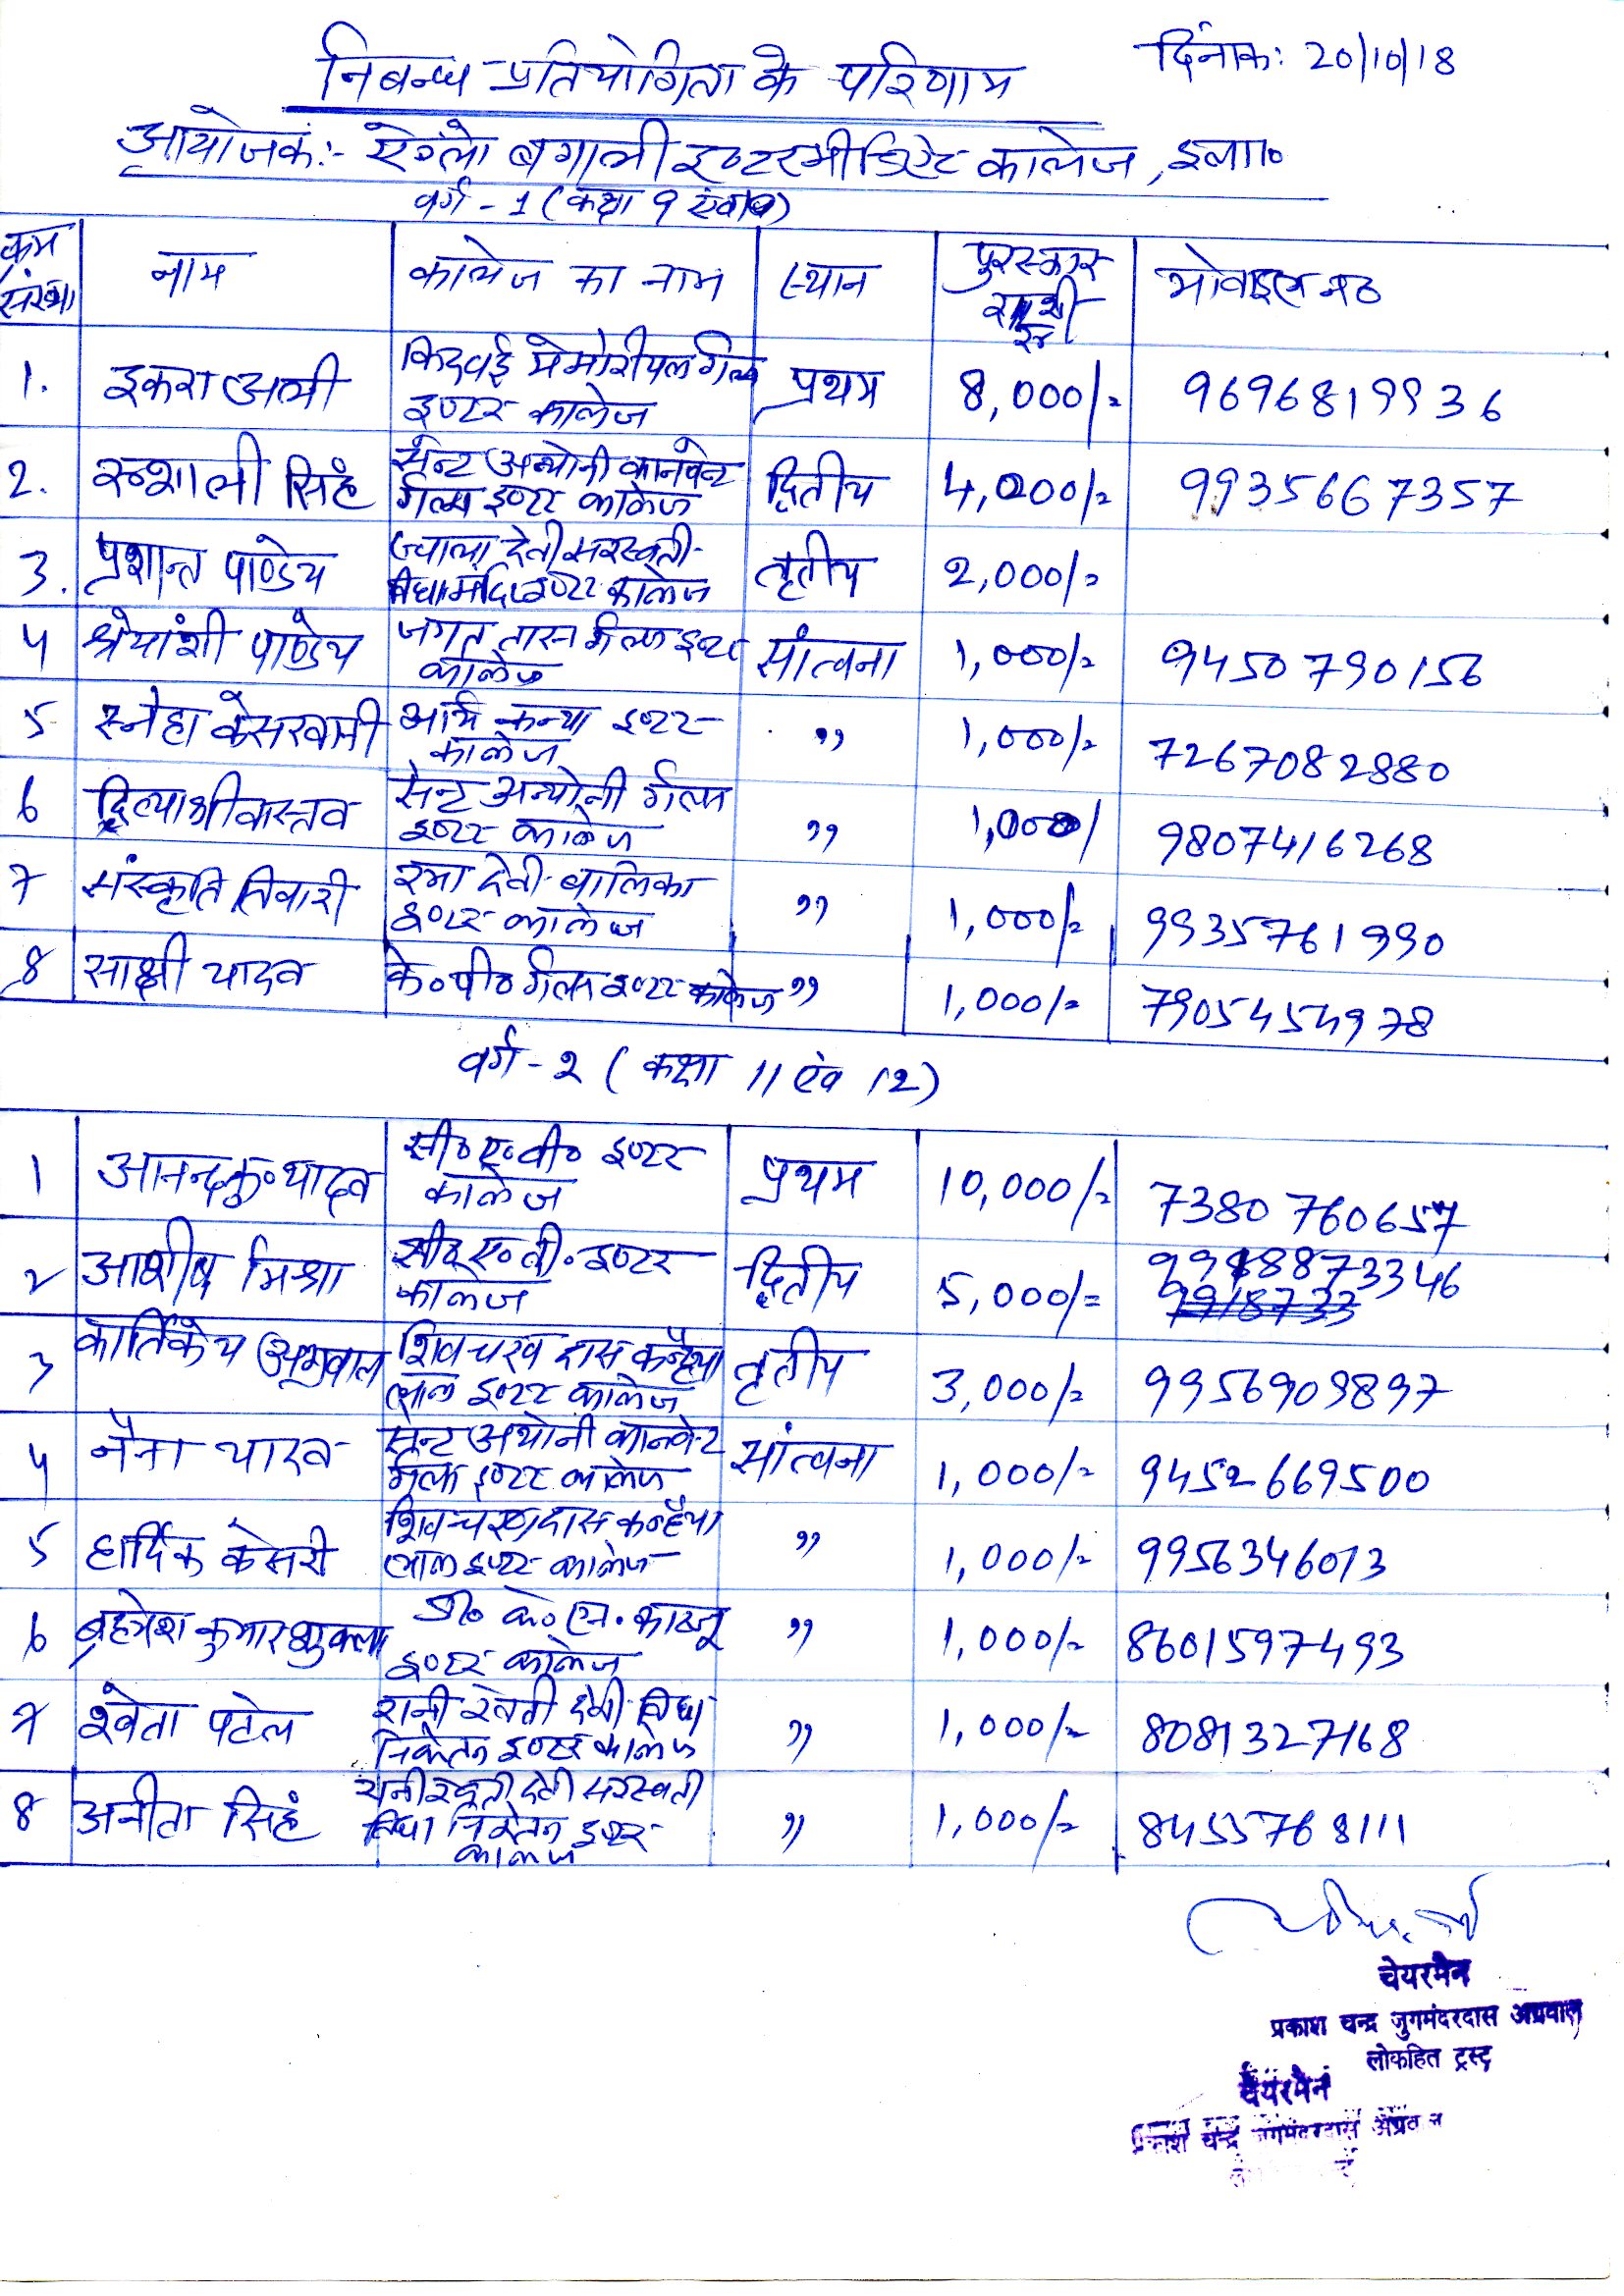 दिनाक: 20/10/18
निबन्ध प्रतियोगिता के परिणाम
आयोजक:- ऐंग्लो बगाली इण्टरमीडिएट कालेज, इला०
वर्ग - 1 (कक्षा 9 एवं 10)
क्रम संख्या नाम कालेज का नाम स्थान पुरस्कार राशी मोबाइल न०
1. इकरा अली किदवई मेमोरीयल गर्ल्स प्रथम 8,000/= 9696819936
इण्टर कालेज
2. रूशाली सिहं सेन्ट अन्थोनी कानवेन्ट द्वितीय 4,000/= 9935667357
गर्ल्स इण्टर कालेज
3. प्रशान्त पाण्डेय ज्वाला देवी सरस्वती- तृतीय 2,000/=
विद्या मंदिर इण्टर कालेज
4 श्रेयांशी पाण्डेय जगत तारन गर्ल्स इण्टर सांत्वना 1,000/= 9450790156
कालेज
5 स्नेहा केसरवानी आर्य कन्या इण्टर ,, 1,000/= 7267082880
कालेज
6 दिव्या श्रीवास्तव सेन्ट अन्थोनी गर्ल्स ,, 1,000/ 9807416268
इण्टर कालेज
7 संस्कृति तिवारी रमा देवी बालिका ,, 1,000/= 9935761990
इण्टर कालेज
8 साक्षी यादव के० पी० गर्ल्स इण्टर कालेज ,, 1,000/= 7905454978
वर्ग - 2 ( कक्षा 11 ऐव 12)
1 आनन्द कु० यादव सी० ए० वी० इण्टर प्रथम 10,000/= 7380760657
कालेज
2 आशीष मिश्रा सी० ए० वी० इण्टर द्वितीय 5,000/=
कालेज
3 कार्तिकेय अग्रवाल शिव चरण दास कन्हैया तृतीय 3,000/= 9956909897
लाल इण्टर कालेज
4 नैना यादव सेन्ट अथोनी कानवेन्ट सांत्वना 1,000/= 9452669500
गर्ल्स इण्टर कालेज
5 हार्दिक केसरी शिव चरण दास कन्हैया ,, 1,000/= 9956346013
लाल इण्टर कालेज
6 ब्रहमेश कुमार शुक्ला के० एन० काटजू ,, 1,000/= 8601597493
इण्टर कालेज
7 श्वेता पटेल रानी रेवती देवी विद्या ,, 1,000/= 8081327168
निकेतन इण्टर कालेज
8 अनीता सिहं रानी रेवती देवी सरस्वती ,, 1,000/= 8455768111
विद्या निकेतन इण्टर
कालेज
चेयरमैन
प्रकाश चन्द्र जुगमंदरदास अग्रवाल
लोकहित ट्रस्ट
चेयरमैन
प्रकाश चन्द्र जुगमंदरदास